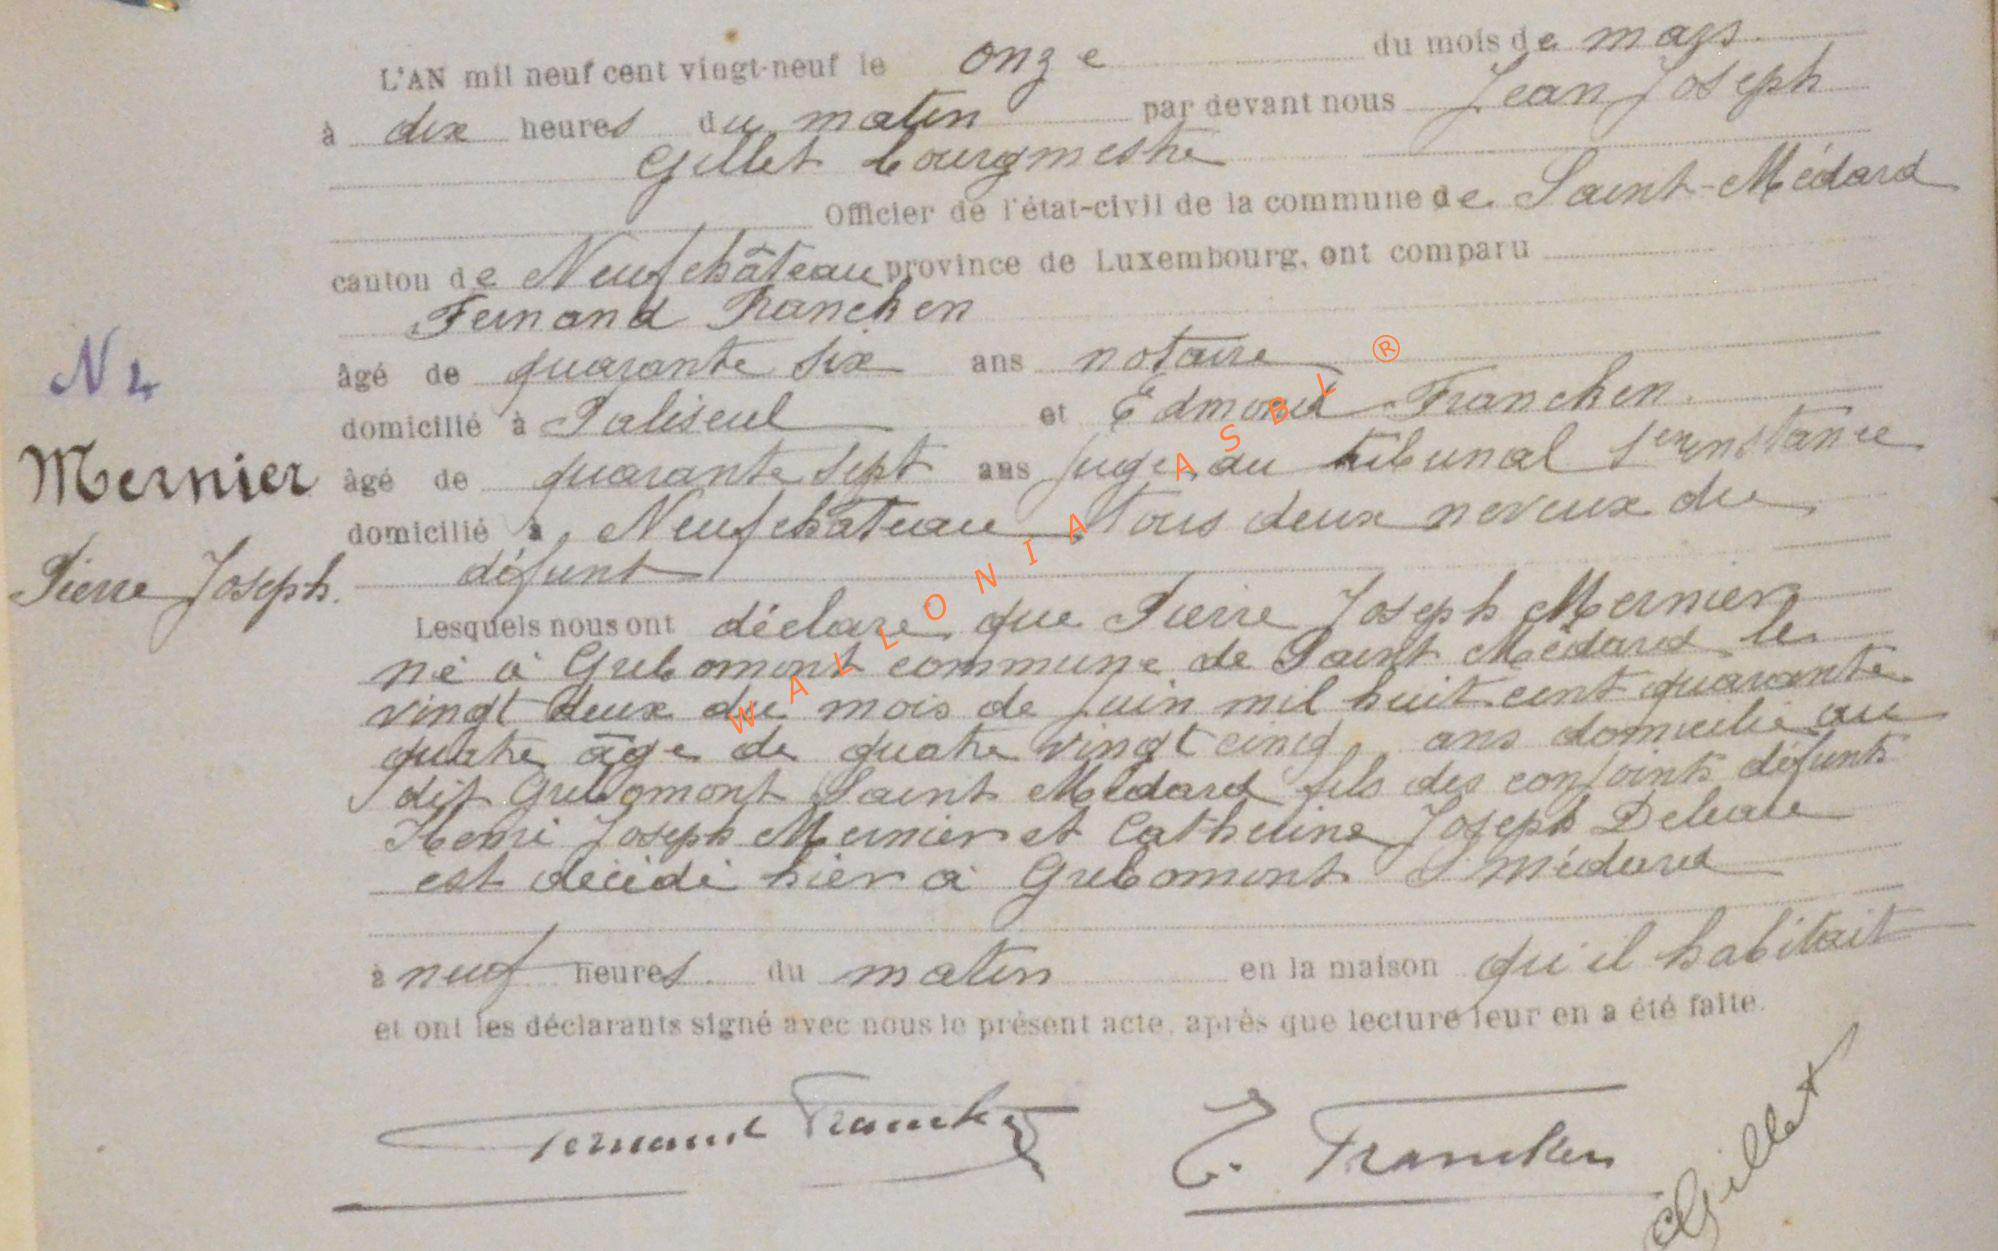 L'AN mil neuf cent vingt-neuf le onze du mois de mars
à dix heures du matin par devant nous Jean Joseph
Gillet bourgmestre
Officier de l'état-civil de la commune de Saint-Médard
canton de Neufchâteau province de Luxembourg, ont comparu
Fernand Francken
N 4
âgé de quarante six ans notaire
domicilié à Paliseul et Edmond Francken
Mernier
âgé de quarante sept ans juge au tribunal 1ere instance
domicilié à Neufchâteau tous deux neveux du
Pierre Joseph.
défunt
Lesquels nous ont déclaré que Pierre Joseph Mernier
né à Gribomont commune de Saint Médard le
vingt deux du mois de juin mil huit cent quarante
quatre âgé de quatre vingt cinq ans domicilié au
dit Gribomont Saint Médard fils des conjoints défunts
Henri Joseph Mernier et Catherine Joseph
est décédé hier à Gribomont St Médard
à neuf heures du matin en la maison qu'il habitait
et ont les déclarants signé avec nous le présent acte, après que lecture leur en a été faite.
Fernand Francken
E. Francken
Gillet
WALLONIA ASBL ®